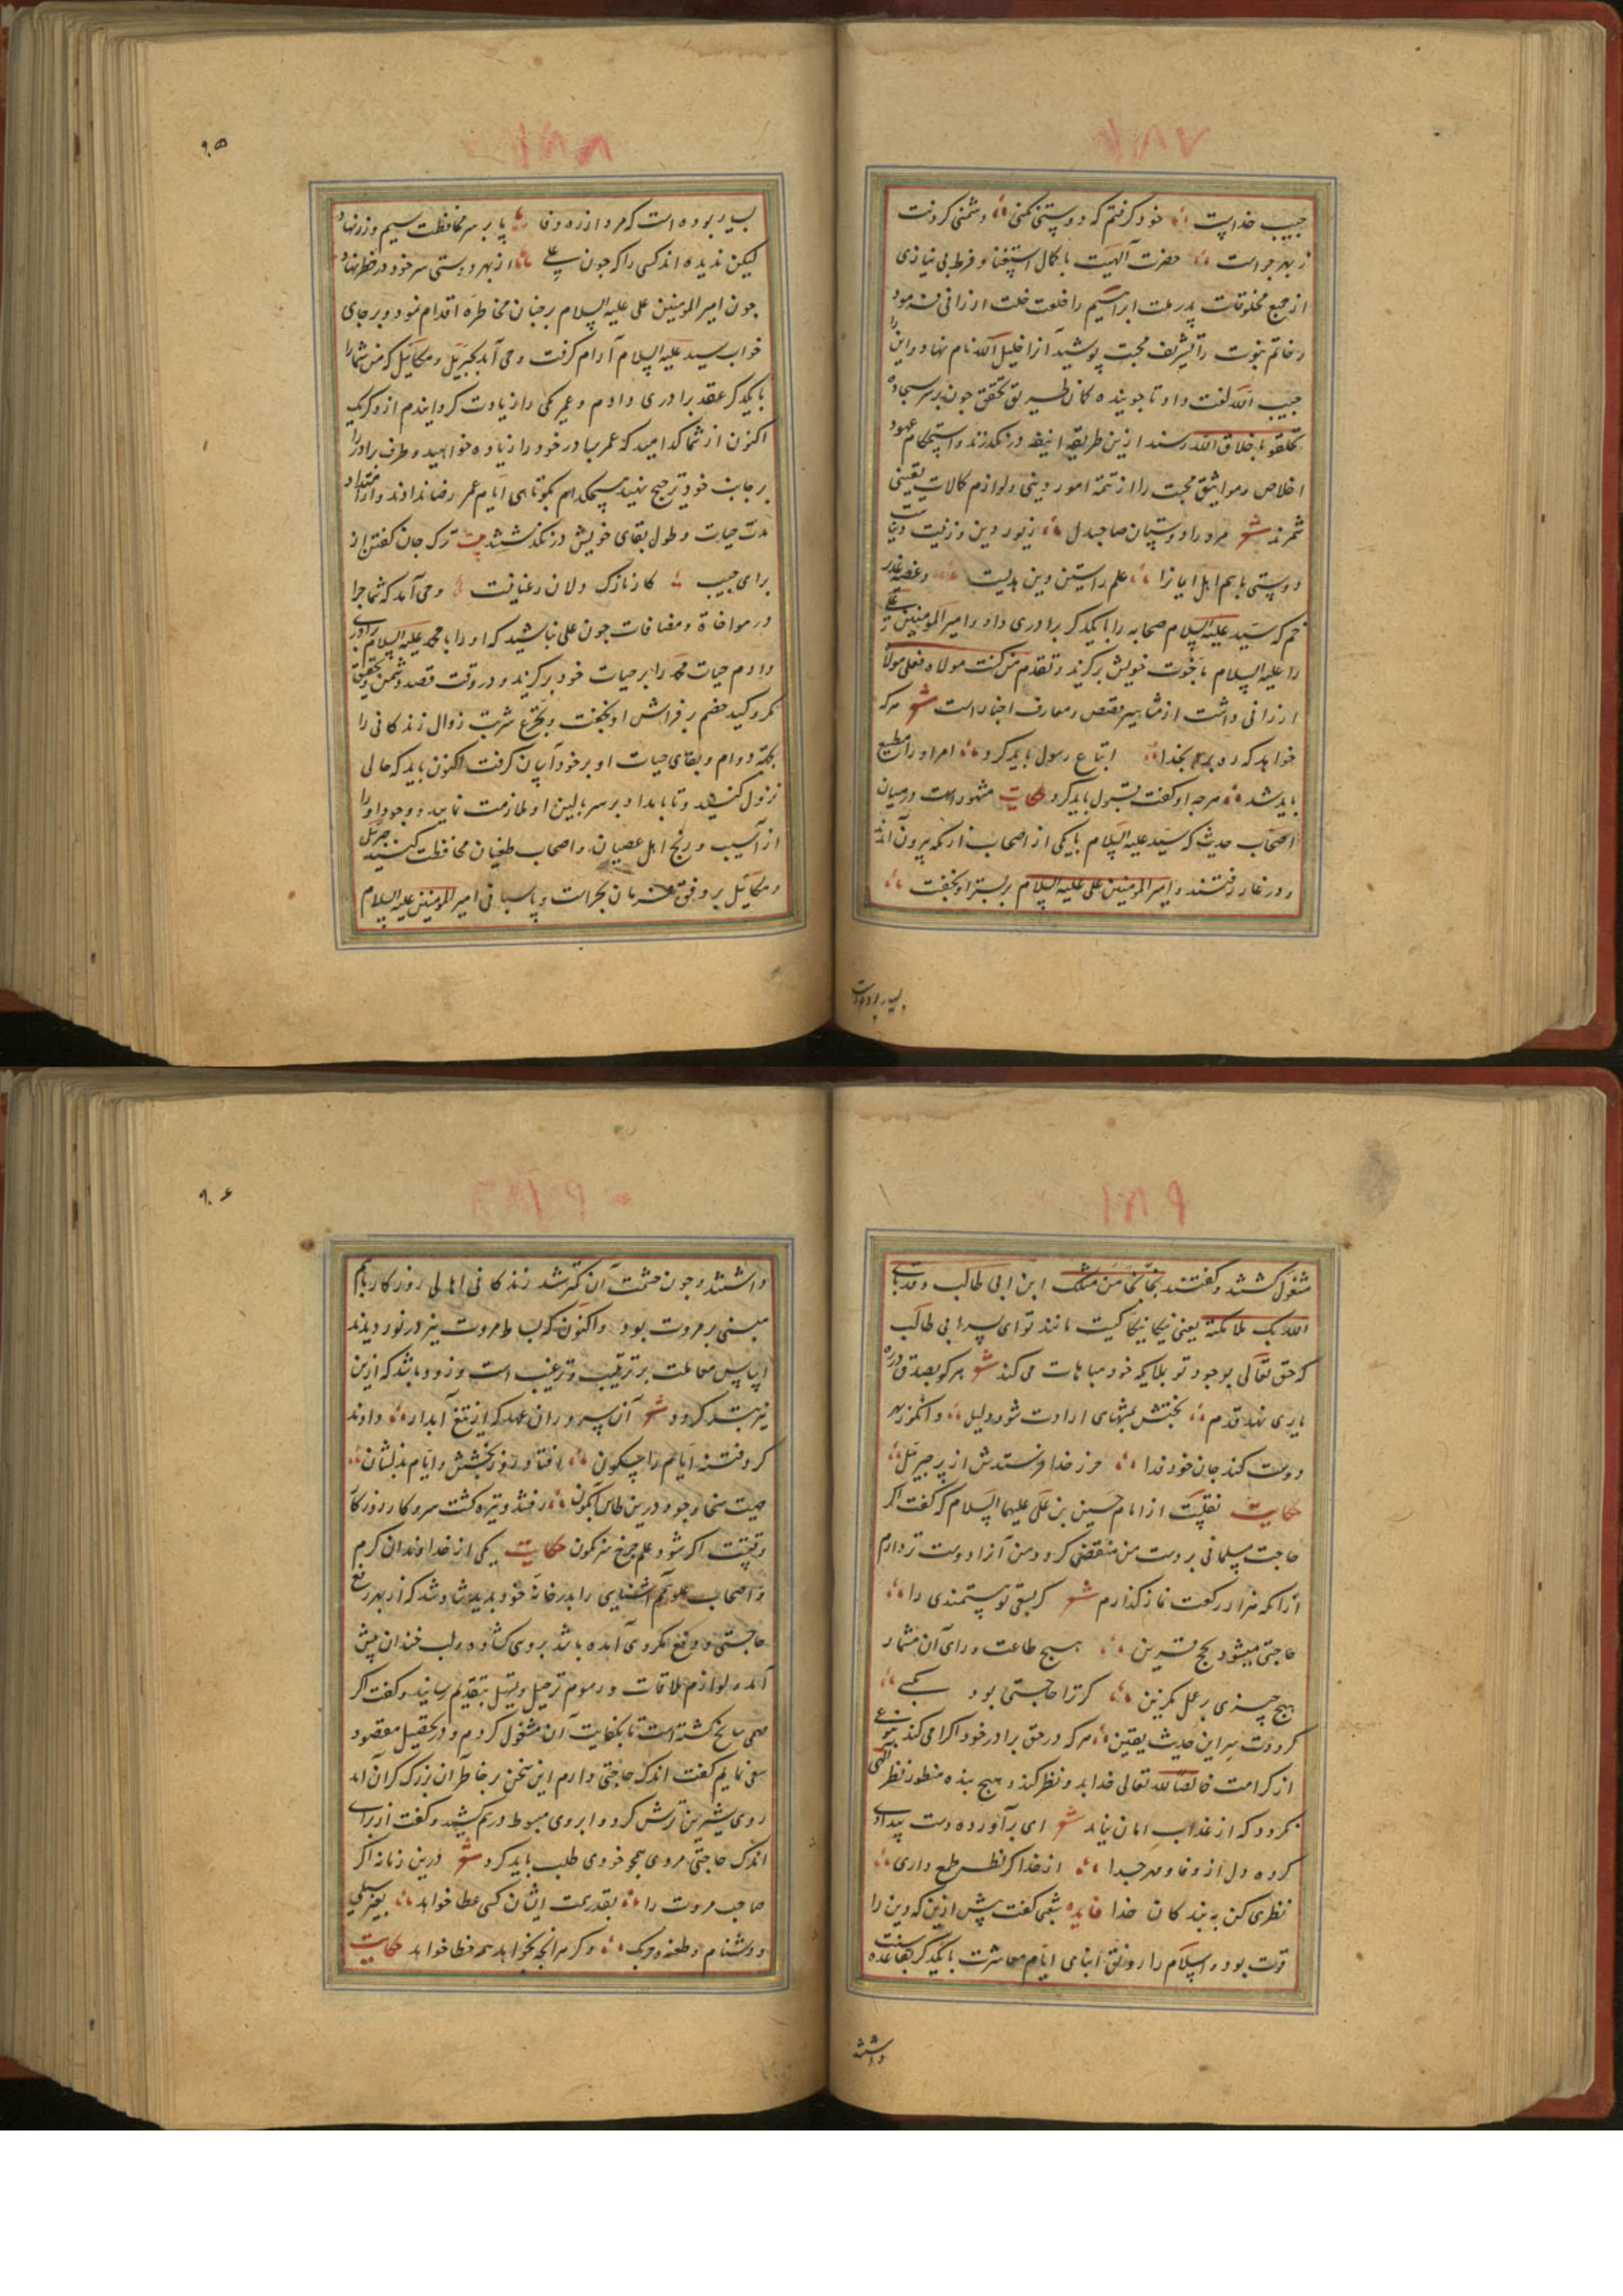 حبیب خداست خود گرفتم که دوستی نکنی دشمنی کردنت
ز بهر چراست حضرت آلهیت با کمال استغنا و فرط بی نیازی
از جمیع مخلوقات پدر ملت ابراهیم را خلعت خلت ارزانی فرمود
و خاتم نبوت را تشریف محبت پوشید آنرا خلیل الله نام نهاد و این را
حبیب الله لقت داد تا جوینده کان طریق تحقق چون بر سر سجاده
تخلقوا باخلاق الله رسند ازین طریقه انیقه در نگذرند و استحکام عهود
اخلاص و مواثیق محبت را از تتمه امور دینی و لوازم کمالات یقینی
شمرند شعر مرد را دوستان صاحبدل زیور دین و زینت دنیاست
دوستی باهم اهل ایمانرا علم راستین دین هدیست و غصه غدیر
خم که سید علیه السلام صحابه را با یکدگر برادری داد و امیر المؤمنین علی
را علیه السلام باخوت خویش برگزید و تقدم من کنت مولاه فعلی مولاه
ارزانی داشت از مشاهیر قصص و معارف اخبار است شعر هرکه
خواهد که ره برد بخدا اتباع رسول باید کرد امر او را مطیع
باید شد هرچه او گفت قبول باید کرد حکایت مشهور است در میان
اصحاب حدیث که سید علیه السلام با یکی از اصحاب از مکه بیرون آمدند
و در غار رفتند و امیر المؤمنین علی علیه السلام بر بستر او بخفت
بسیار بوده است
۹۰۵
بسیار بوده است که مرد از ره وفا پا بر سر محافظت سیم و زر نهاد
لیکن ندیده اند کسی را که چون علی از بهر دوستی سر خود در خطر نهاد
چون امیر المؤمنین علی علیه السلام بر چنان مخاطره اقدام نمود و بر جای
خواب سید علیه السلام آرام گرفت وحی آمد بجبریل و میکائیل که من شما را
با یکدگر عقد برادری دادم و عمر یکی را زیادت گردانیدم از دگر یک
اکنون از شما کدامید که عمر برادر خود را زیاده خواهید و طرف برادر را
بر جانب خود ترجیح نهید هیچکدام بکوتاهی ایام عمر رضا ندادند و از امتداد
مدت حیات و طول بقای خویش در نگذشتند بیت ترک جان گفتن از
برای حبیب کار نازک دلان رعنا نیست وحی آمد که شما چرا
در مواخاة و مصافات چون علی نباشید که او را با محمد علیه السلام برادری
دادم حیات محمد را بر حیات خود برگزید و در وقت قصد دشمن و تحقیق
مکر و کید خصم بر فراش او بخفت و تجرع شربت زوال زندگانی را
بجهة دوام و بقای حیات او بر خود آسان گرفت اکنون باید که حالی
نزول کنید و تا بامداد بر سر بالین او ملازمت نمایید و وجود او را
از آسیب و رنج اهل عصیان و اصحاب طغیان محافظت کنید جبرئیل
و میکائیل بر وفق فرمان بحراست و پاسبانی امیر المؤمنین علیه السلام
مشغول گشتند و گفتند بخ بخ من مثلک ابن ابی طالب و قد باهی
الله بک ملائکته یعنی نیکا نیکا کیست مانند تو ای پسر ابی طالب
که حق تعالی بوجود تو بملایکه خود مباهات می کند شعر هر کو بصدق در ره
یاری نهد قدم بختش بمنتهای ارادت شود دلیل وانکز بهر
دوست کند جان خود فدا حرز خدا فرستدش از پر جبرئیل
حکایت نقلیست از امام حسین بن علی علیهما السلام که گفت اگر
حاجت مسلمانی بر دست من منقضی گردد من آنرا دوست تر دارم
از انکه هزار رکعت نماز گذارم شعر گر بسعی تو مستمندی را
حاجتی میشود بنجح قرین هیچ طاعت ورای آن مشمار
هیچ چیزی بر عمل مگزین گر ترا حاجتی بود بکسی
گرددت سر این حدیث یقین هرکه در حق برادر خود اکرامی کند بنوعی
از کرامت خالصا لله تعالی خدا بدو نظر کند و هیچ بنده منظور نظر الهی
نگردد که از عذاب امان نیابد شعر ای برآورده دست بیدادی
کرده دل از وفا و مهر جدا از خدا گر نظر طمع داری
نظری کن به بندکان خدا فایده شعبی گفت پیش ازین که دین را
قوت بود و اسلام را رونق ابنای ایام معاشرت با یکدگر بقاعده سنت
داشتند
۹۰۶
داشتند و چون حشمت آن کمتر شد زندکانی اهالی روزکار باهم
مبنی بر مروت بود و اکنون که بساط مروت نیز در نوردیدند
اساس معاملت بر ترقیب و ترغیب است و زود باشد که ازین
نیز بتر گردد شعر آن سروران عهد که از تیغ آبدار دادند
گرد فتنه ایام را سکون افتاد روز بخشش و ایام بذلشان
صیت سخا و جود درین طاس آبگون رفتند و تیره گشت سر و کار روزکار
وقتست اگر شود علم چرخ سرنگون حکایت یکی از خداوندان کرم
و اصحاب علو همم آشنایی را بدر خانه خود بدید شاد شد که از بهر رفع
حاجتی و دفع مکروهی آمده باشد بروی گشاده و لب خندان پیش
آمد و لوازم ملاقات و رسوم ترحیل و تهیل بتقدیم رسانید و گفت اگر
مهمی سانح گشته است تا بکفایت آن مشغول گردم و در تحصیل مقصود
سعی نمایم گفت اندک حاجتی دارم این سخن بر خاطر آن بزرگ گران آمد
روی شیرین ترش کرد و ابروی مبسوط درهم کشید و گفت از برای
اندک حاجتی مردی همچو خودی طلب باید کرد شعر درین زمانه اگر
صاحب مروت را بقدر همت ایشان کسی عطا خواهد بغیر سیلی
و دشنام و طعنه و چوبک و گر هرآنچه بخواهد همه خطا خواهد حکایت